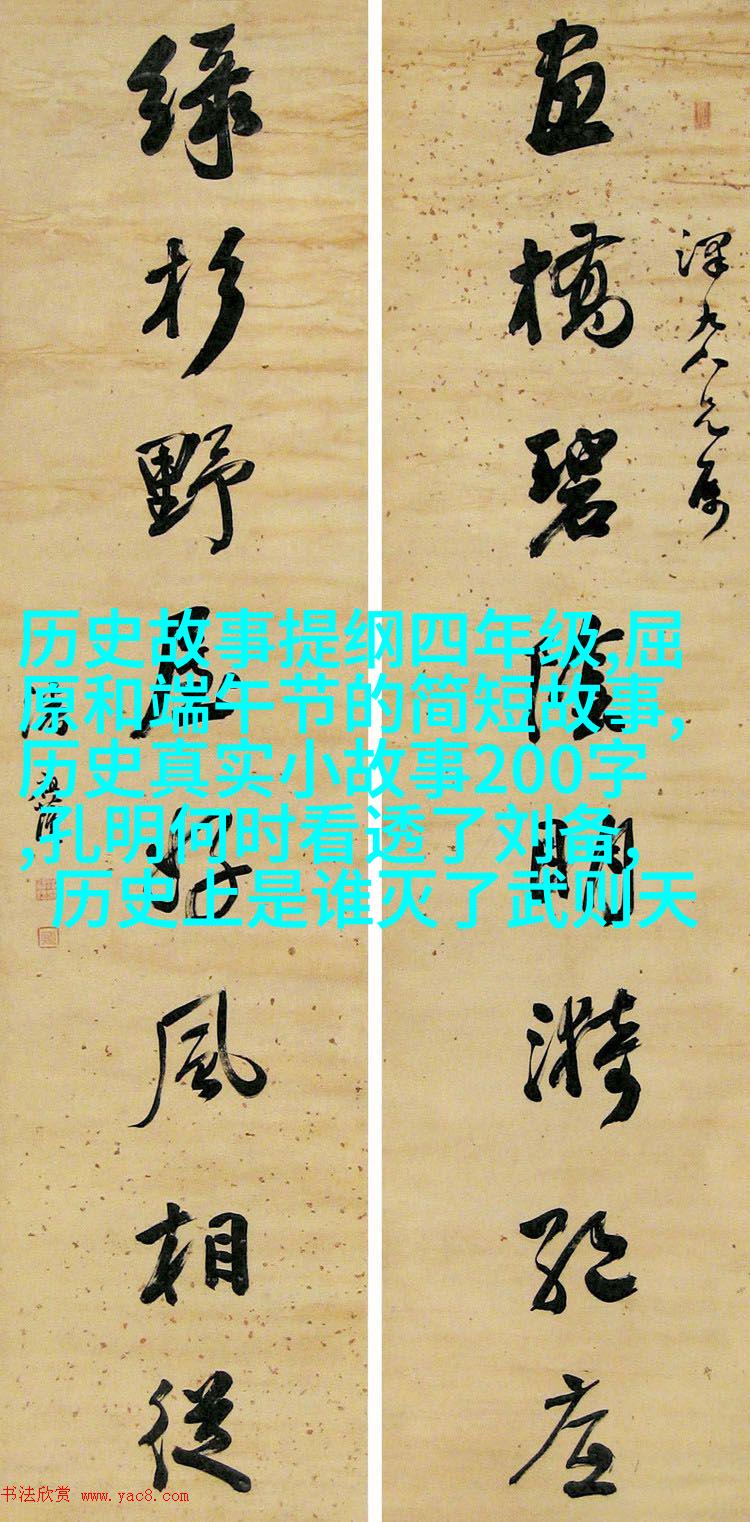 澤九兄屬
畫橋碧陰明漪絕底
綠杉野屋好風相從
历史故事提纲四年级,屈
原和端午节的简短故事,
历史真实小故事200字
,孔明何时看透了刘备,
历史上是谁灭了武则天
书法欣赏 www.yac8.com